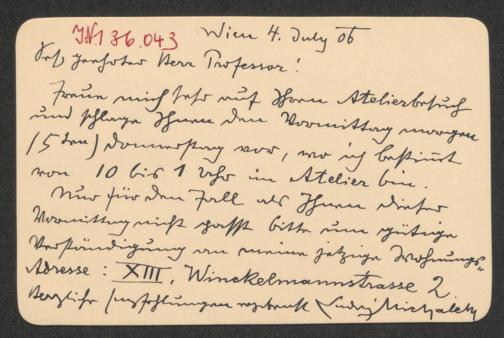 I.N. 136.043
Wien 4. July 06
Sehr geehrter Herr Professor!
Freue mich sehr auf Ihren Atelierbesuch
und schlage Ihnen den Vormittag morgen
(5ten) Donnerstag vor, wo ich bestimmt
von 10 bis 1 Uhr im Atelier bin.
Nur für den Fall als Ihnen dieser
Vormittag nicht passt bitte um gütige
Verständigung an meine jetzige Wohnungs-
Adresse: XIII, Winckelmannstrasse 2.
Herzliche Empfehlungen ergebenst Ludwig Michalek